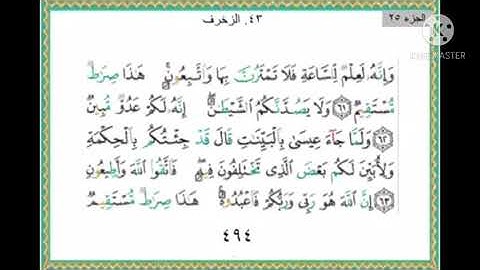 الجزء ٢٥
٤٣. الزخرف
KINEMASTER
وَإِنَّهُۥ لَعِلْمٌ لِّلسَّاعَةِ فَلَا تَمْتَرُنَّ بِهَا وَٱتَّبِعُونِ ۚ هَٰذَا صِرَٰطٌ
مُّسْتَقِيمٌ ﴿٦١﴾ وَلَا يَصُدَّنَّكُمُ ٱلشَّيْطَٰنُ ۖ إِنَّهُۥ لَكُمْ عَدُوٌّ مُّبِينٌ
﴿٦٢﴾ وَلَمَّا جَآءَ عِيسَىٰ بِٱلْبَيِّنَٰتِ قَالَ قَدْ جِئْتُكُم بِٱلْحِكْمَةِ
وَلِأُبَيِّنَ لَكُم بَعْضَ ٱلَّذِى تَخْتَلِفُونَ فِيهِ ۖ فَٱتَّقُوا۟ ٱللَّهَ وَأَطِيعُونِ
﴿٦٣﴾ إِنَّ ٱللَّهَ هُوَ رَبِّى وَرَبُّكُمْ فَٱعْبُدُوهُ ۚ هَٰذَا صِرَٰطٌ مُّسْتَقِيمٌ
٤٩٤